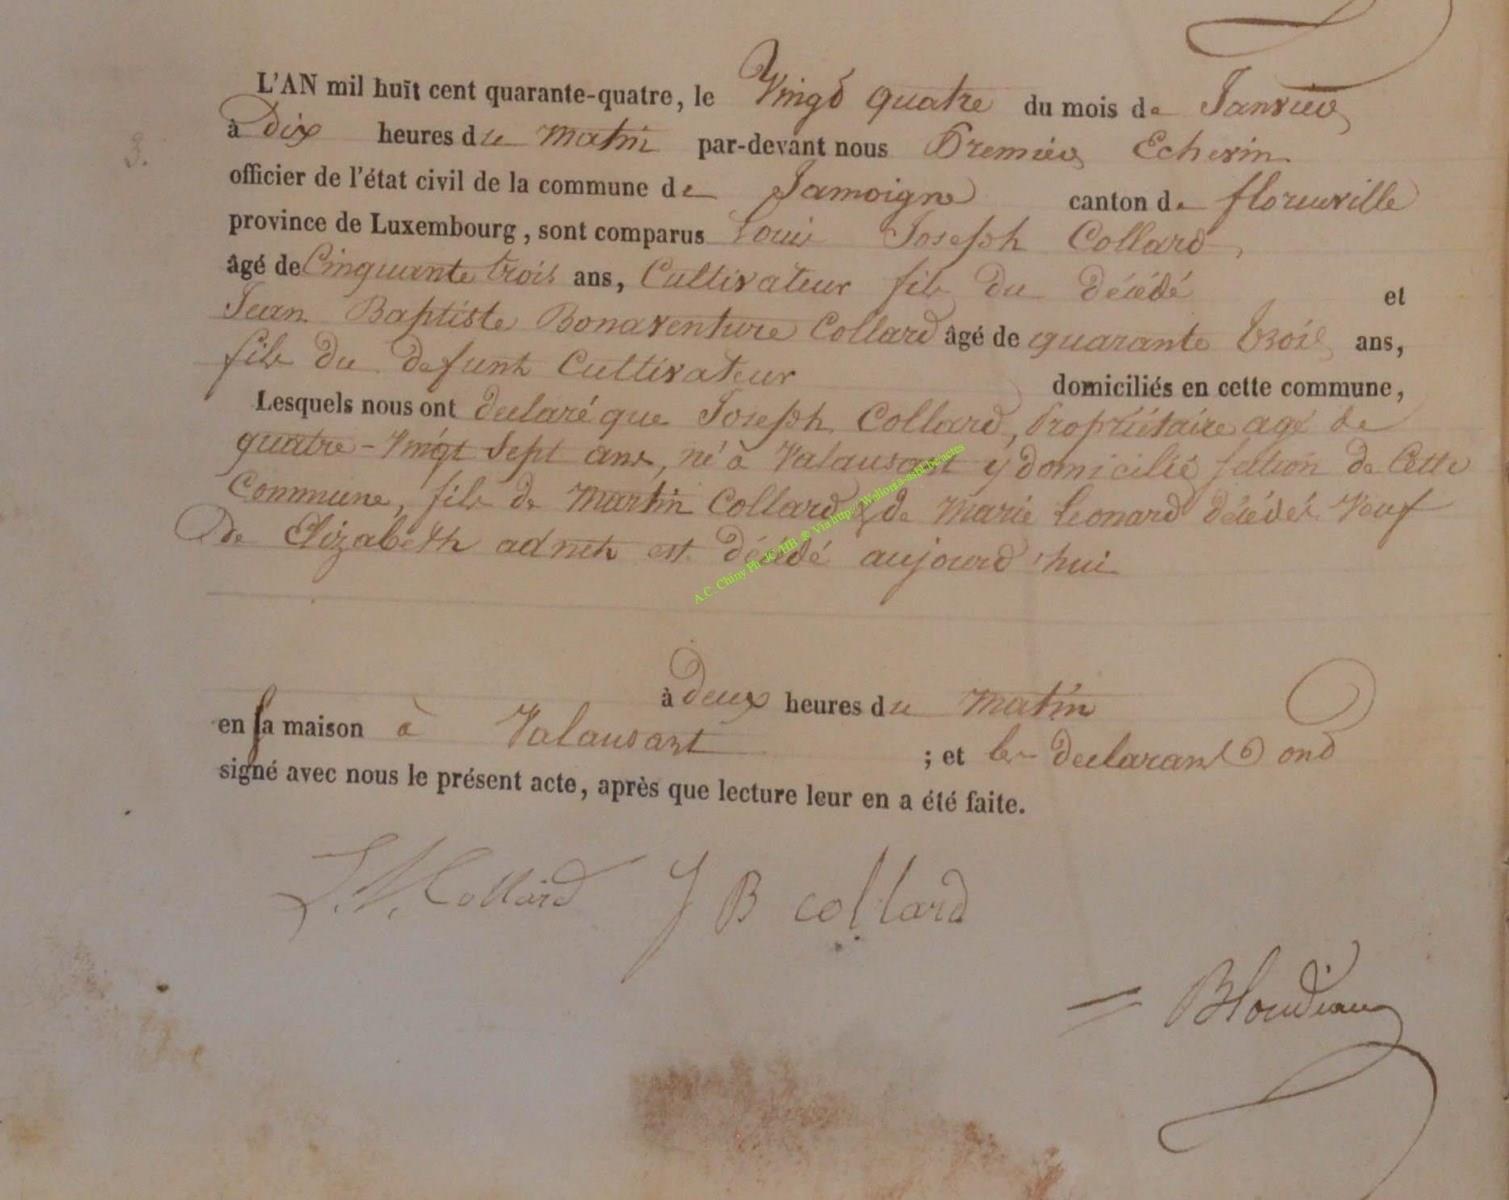 L'AN mil huit cent quarante-quatre, le Vingt quatre du mois de Janvier
3. à Dix heures du matin par-devant nous Premier Echevin
officier de l'état civil de la commune de Jamoigne canton de florenville
province de Luxembourg, sont comparus Louis Joseph Collard,
âgé de Cinquante trois ans, Cultivateur fils du décédé et
Jean Baptiste Bonaventure Collard âgé de quarante trois ans,
fils du defunt Cultivateur domiciliés en cette commune,
Lesquels nous ont declaré que Joseph Collard, Propriétaire agé de
quatre-Vingt Sept ans, né à Valansart y domicilié section de Cette
Commune, fils de Martin Collard & de Marie Leonard décédés Veuf
De Elizabeth adneth est décédé aujourd'hui
A.C. Chiny Ph JC/HB ® Via http://Wallonia-asbl.be/actes
à deux heures du matin
en sa maison à Valansart ; et les declarants ont
signé avec nous le présent acte, après que lecture leur en a été faite.
Collard J B collard
Blondiau